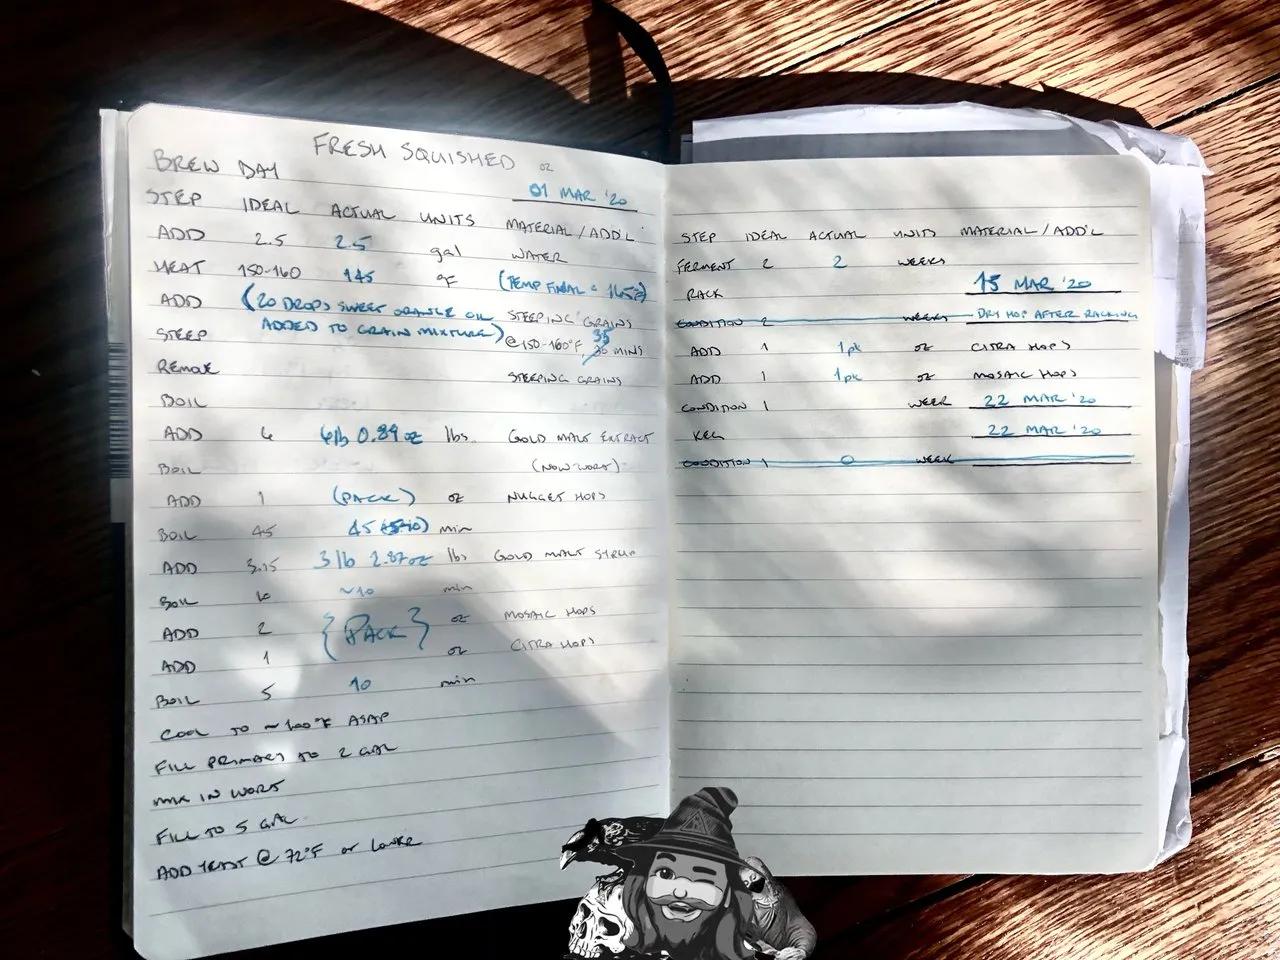 FRESH SQUISHED
BREW DAY
oz
01 MAR '20
STEP IDEAL ACTUAL UNITS MATERIAL/ADD'L
ADD 2.5 2.5 gal WATER
HEAT 150-160 145 °F (TEMP FINAL = 165°)
ADD (20 DROPS SWEET ORANGE OIL STEEPING GRAINS
ADDED TO GRAIN MIXTURE)
STEEP @150-160°F 35 MINS
REMOVE STEEPING GRAINS
BOIL
ADD 6 6lb 0.89oz lbs. GOLD MALT EXTRACT
BOIL (NOW WORT)
ADD 1 (PACK) oz NUGGET HOPS
BOIL 45 45 min
ADD 3.15 3lb 2.87oz lbs GOLD MALT SYRUP
BOIL 10 ~10 min
ADD 2 {PACK} oz MOSAIC HOPS
ADD 1 oz CITRA HOPS
BOIL 5 10 min
COOL TO ~100°F ASAP
FILL PRIMARY TO 2 GAL
MIX IN WORT
FILL TO 5 GAL
ADD YEAST @ 72°F or LOWER
STEP IDEAL ACTUAL UNITS MATERIAL/ADD'L
FERMENT 2 2 WEEKS
RACK 15 MAR '20
CONDITION 2 WEEKS DRY HOP AFTER RACKING
ADD 1 1pk oz CITRA HOPS
ADD 1 1pk oz MOSAIC HOPS
CONDITION 1 WEEK 22 MAR '20
KEG 22 MAR '20
CONDITION 1 0 WEEK